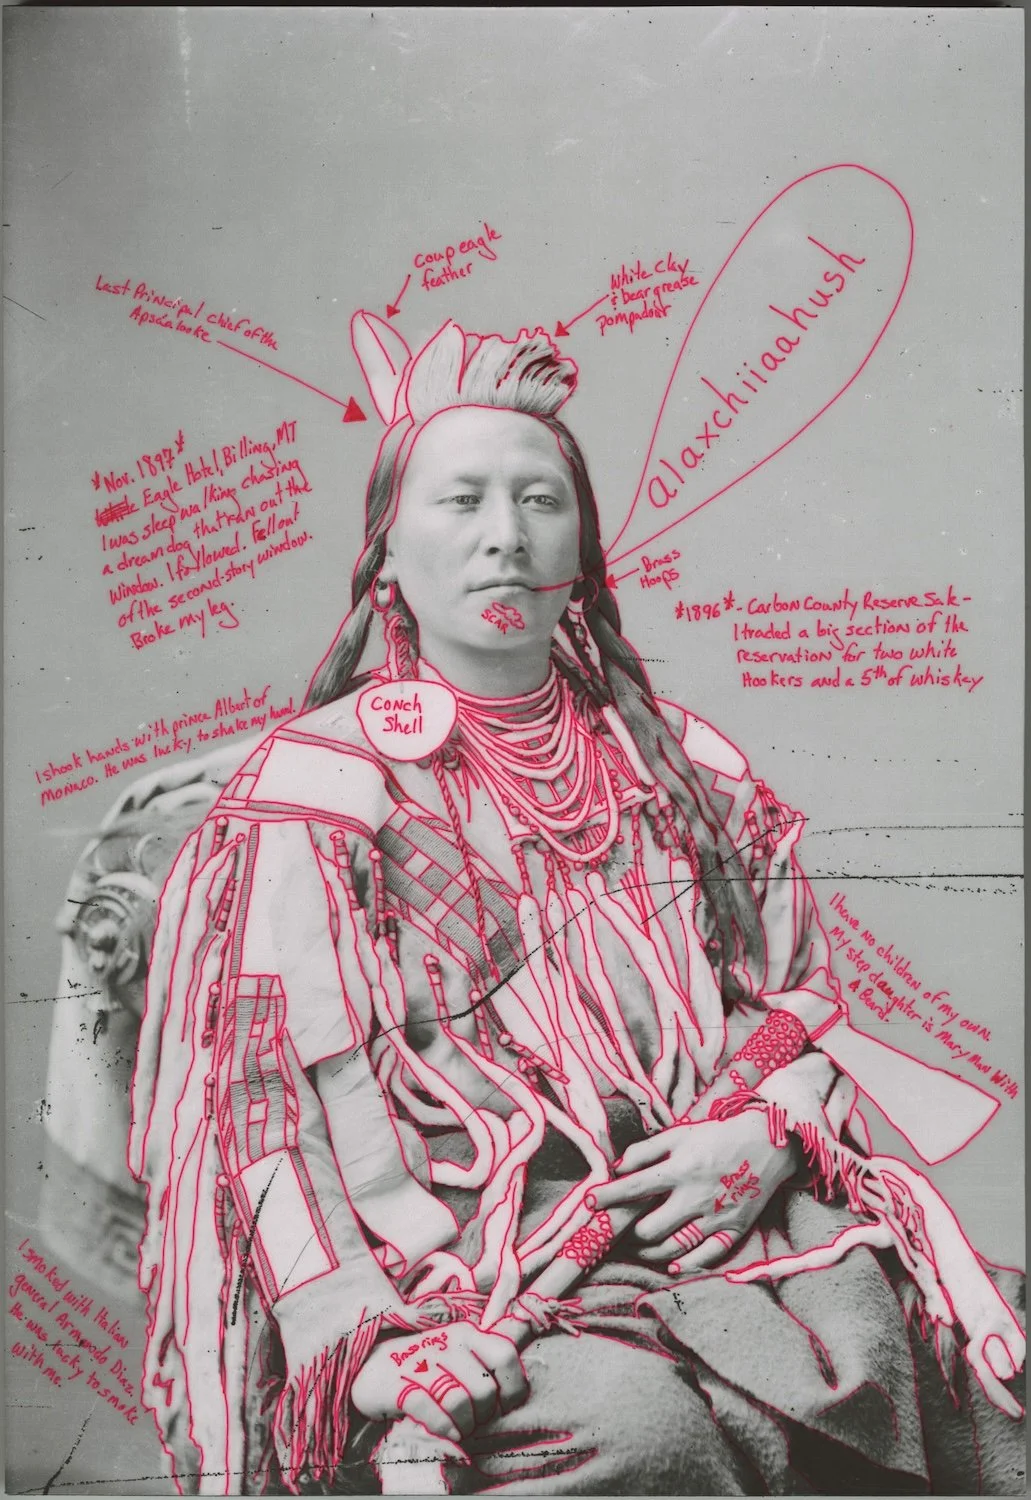 coup eagle
feather
White Clay
& bear grease
pompadour
Last Principal Chief of the
Apsáalooke
alaxchiiaahush
*Nov. 1897*
Eagle Hotel, Billing, MT
I was sleep walking chasing
a dream dog that ran out the
window. I followed. Fell out
of the second-story window.
Broke my leg.
Brass
Hoops
SCAR
*1896* - Carbon County Reserve Sale -
I traded a big section of the
reservation for two white
Hookers and a 5th of whiskey
Conch
Shell
I shook hands with prince Albert of
Monaco. He was lucky to shake my hand.
I have no children of my own.
My step daughter is Mary Man With
A Beard.
Brass
rings
I smoked with Italian
general Armondo Diaz.
He was lucky to smoke
with me.
Brass rings